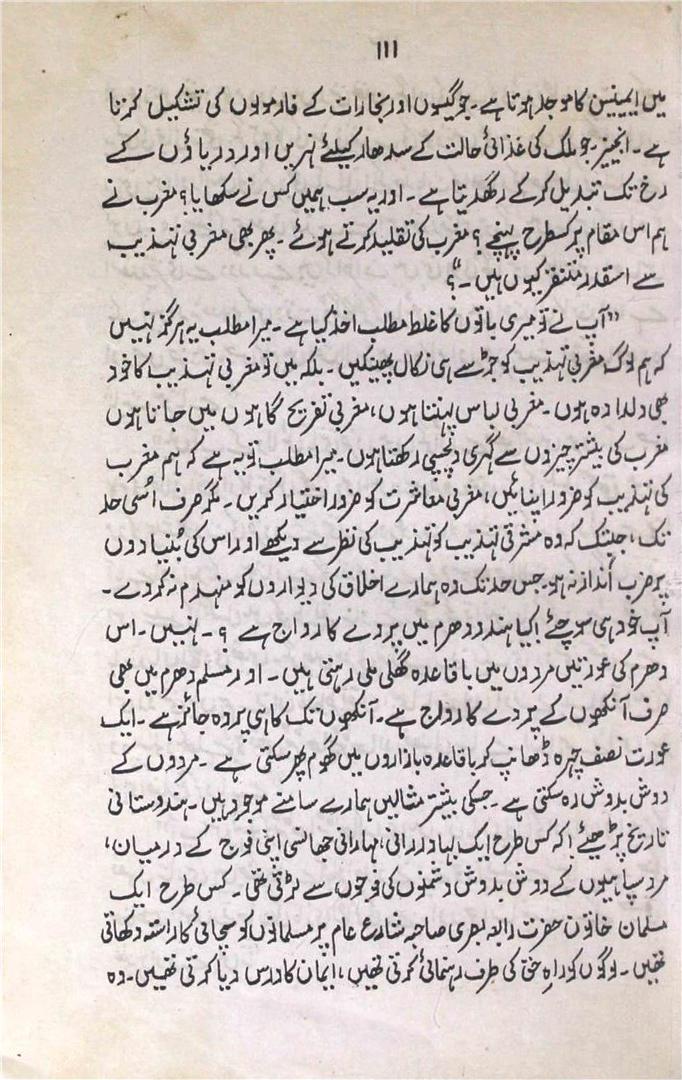 ۱۱۱
میں ایمپنین کا موجد ہوتا ہے۔ جو گیسوں اور بخارات کے فارمولوں کی تشکیل کرتا
ہے۔ انجینیر۔ جو ملک کی غذائی حالت کے سدھار کیلئے نہریں اور دریاؤں کے
رخ تک تبدیل کر کے رکھدیتا ہے۔ اور یہ سب ہمیں کس نے سکھایا؟ مغرب نے
ہم اس مقام پر کسطرح پہنچے؟ مغرب کی تقلید کرتے ہوئے۔ پھر بھی مغربی تہذیب
سے اسقدر متنفر کیوں ہیں۔"؟
"آپ نے تو میری باتوں کا غلط مطلب اخذ کیا ہے۔ میرا مطلب یہ ہرگز نہیں
کہ ہم لوگ مغربی تہذیب کو جڑ سے ہی نکال پھینکیں۔ بلکہ میں تو مغربی تہذیب کا خود
بھی دلدادہ ہوں۔ مغربی لباس پہنتا ہوں، مغربی تفریح گاہوں میں جاتا ہوں
مغرب کی بیشتر چیزوں سے گہری دلچسپی رکھتا ہوں۔ میرا مطلب تو یہ ہے کہ ہم مغرب
کی تہذیب کو ضرور اپنائیں، مغربی معاشرت کو ضرور اختیار کریں۔ مگر صرف اُسی حد
تک، جبتک کہ وہ مشرقی تہذیب کو تہذیب کی نظر سے دیکھے اور اس کی بُنیادوں
پر ضرب انداز نہ ہو۔ جس حد تک وہ ہمارے اخلاق کی دیواروں کو منہدم نہ کر دے۔
آپ خود ہی سوچئے! کیا ہندو دھرم میں پردے کا رواج ہے؟۔ نہیں۔ اس
دھرم کی عورتیں مردوں میں باقاعدہ گھلی ملی رہتی ہیں۔ اور مسلم دھرم میں بھی
صرف آنکھوں کے پردے کا رواج ہے۔ آنکھوں تک کا ہی پردہ جائز ہے۔ ایک
عورت نصف چہرہ ڈھانپ کر باقاعدہ بازاروں میں گھوم پھر سکتی ہے۔ مردوں کے
دوش بدوش رہ سکتی ہے۔ جسکی بیشتر مثالیں ہمارے سامنے موجود ہیں۔ ہندوستانی
تاریخ پڑھیئے! کہ کس طرح ایک بہادر رانی، مہارانی جھانسی اپنی فوج کے درمیان،
مرد سپاہیوں کے دوش بدوش دشمنوں کی فوجوں سے لڑتی تھی۔ کس طرح ایک
مسلمان خاتون حضرت رابعہ بصری صاحبہ شارع عام پر مسلمانوں کو سچائی کا راستہ دکھاتی
تھیں۔ لوگوں کو راہِ حق کی طرف رہنمائی کرتی تھیں، ایمان کا درس دیا کرتی تھیں۔ وہ